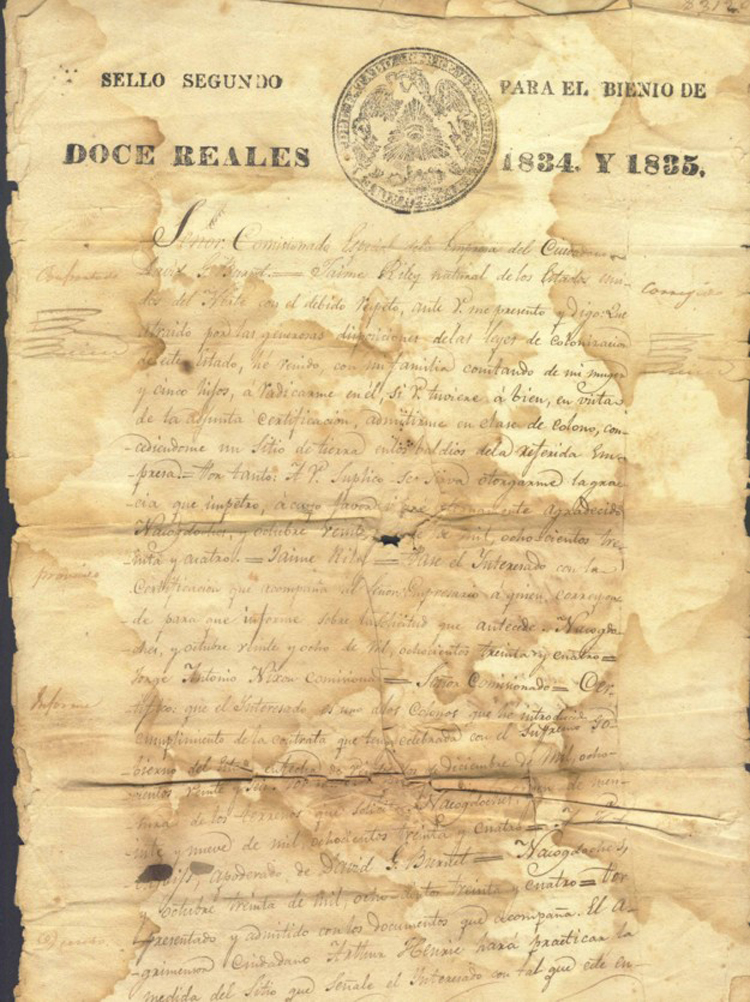 $312
SELLO SEGUNDO PARA EL BIENIO DE
DOCE REALES 1834. Y 1835.
Señor Comisionado Especial de la Empresa del Ciudadano
David G. Burnet. = Jaime Riley natural de los Estados uni-
dos del Norte con el debido respeto, ante V. me presento y digo: Que
atraido por las generosas disposiciones de las leyes de colonizacion
de este Estado, he venido, con mi familia constando de mi muger
y cinco hijos, a radicarme en él, si V. tuviere á bien, en vista
de la adjunta certificacion, admitirme en clase de colono, con-
cediendome un Sitio de tierra en los baldios de la referida Em-
presa. = Por tanto: A V. Suplico se sirva otorgarme la gra-
cia que impetro, á cuyo favor eternamente agradecido
Nacogdoches, y octubre veinte de mil, ochocientos tre-
inta y cuatro. = Jaime Riley = Pase el Interesado con la
Certificacion que acompaña al Señor Empresario a quien correspon-
de para que informe sobre la solicitud que antecede. Nacogdo-
ches, y octubre veinte y ocho de mil, ochocientos treinta y cuatro =
Jorge Antonio Nixon Comisionado = Señor Comisionado = Cer-
tifico: que el Interesado es uno de los Colonos que he introducido
cumplimiento de la contrata que tengo celebrada con el Supremo Go-
-bierno del Estado de Diciembre de mil, ocho-
cientos, veinte y seis
de los terrenos que solicita Nacogdoches,
nte y nueve de mil, ochocientos treinta y cuatro =
apoderado de David G. Burnet = Nacogdoches,
y Octubre treinta de mil, ochocientos treinta y cuatro = Por
presentado y admitido con los documentos que acompaña. El A-
grimensor Ciudadano Arthur Henrie hará practicar la
medida del Sitio que Señale el Interesado con tal que este en
Confrontado
Corregido
Informe
Decreto